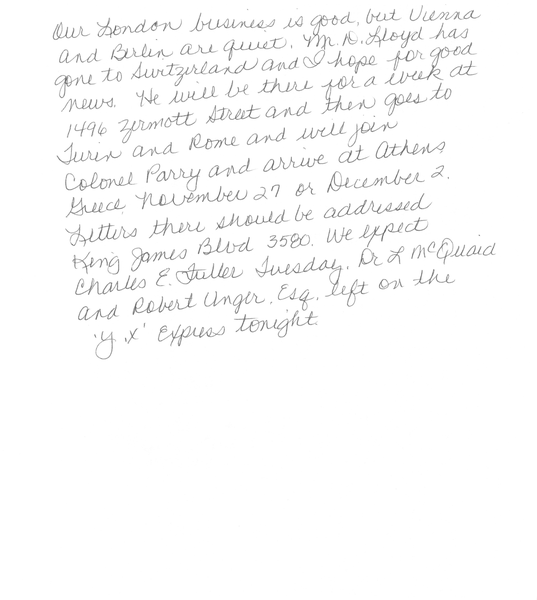 Our London business is good, but Vienna
and Berlin are quiet. Mr. D. Lloyd has
gone to Switzerland and I hope for good
news. He will be there for a week at
1496 Zermott Street and then goes to
Turin and Rome and will join
Colonel Parry and arrive at Athens
Greece November 27 or December 2.
Letters there should be addressed
King James Blvd 3580. We expect
Charles E. Fuller Tuesday. Dr L McQuaid
and Robert Unger, Esq. left on the
'Y.X' Express tonight.